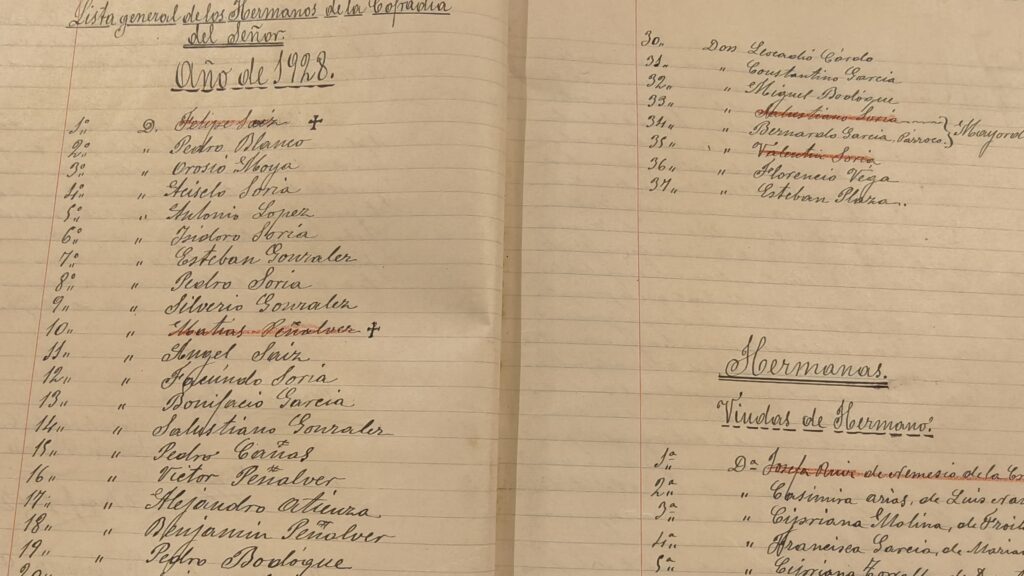 Lista general de los Hermanos de la Cofradia
del Señor.
Año de 1928.
1º D. Felipe Saiz ✝
2º " Pedro Blanco
3º " Orosio Moya
4º " Aciselo Soria
5º " Antonio Lopez
6º " Isidoro Soria
7º " Esteban Gonzalez
8º " Pedro Soria
9 " " Silverio Gonzalez
10 " " Matias Peñalver ✝
11 " " Angel Saiz
12 " " Facundo Soria
13 " " Bonifacio Garcia
14 " " Salustiano Gonzalez
15 " " Pedro Cañas
16 " " Victor Peñalver
17 " " Alejandro Atienza
18 " " Benjamin Peñalver
19 " " Pedro Bodoque
30 " Don Leocadio Córdo
31 " " Constantino Garcia
32 " " Miguel Bodoque
33 " " Salustiano Soria
34 " " Bernardo Garcia, Párroco } Mayord
35 " " Valentin Soria
36 " " Florencio Véga
37 " " Esteban Plaza..
Hermanas.
Viudas de Hermano:
1ª Dª Josefa Ruiz de Nemesio de la
2ª " Casimira Arias, de Luis
3ª " Cipriana Molina, de
4ª " Francisca Garcia, de Marian
5ª " Cipriana